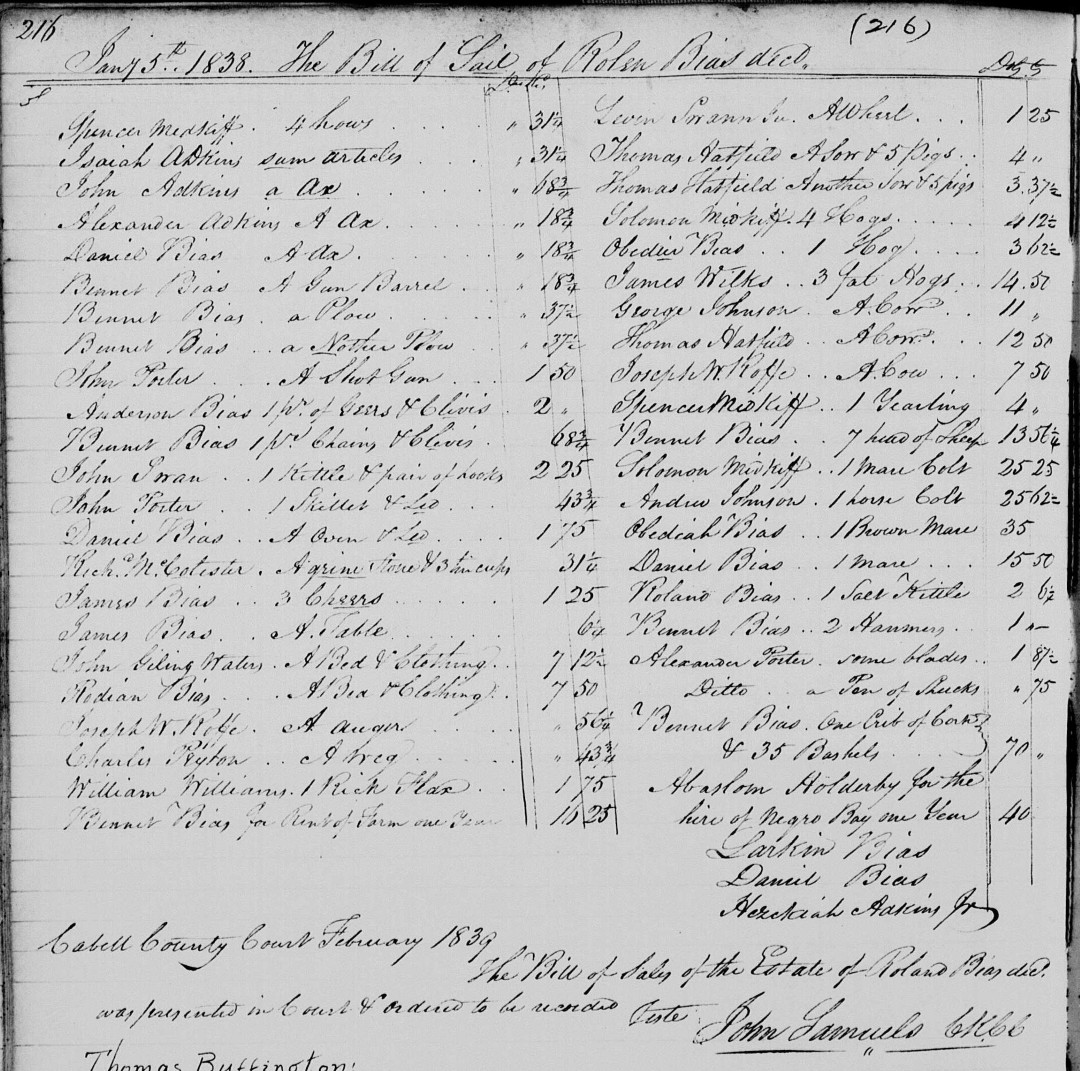 216
(216)
Jany 5th. 1838. The Bill of Sail of Rolen Bias decd.
Spencer Medkiff . 4 hows . . . . " 31 1/4
Isaiah Adkins sum articles . . . " 31 1/4
John Adkins a Ax . . . . " 68 3/4
Alexander Adkins A Ax . . . " 18 3/4
Daniel Bias A Ax . . . . " 18 3/4
Bennet Bias A Gun Barrel . . . " 18 3/4
Bennet Bias . a Plow . . . " 37 1/2
Bennet Bias . . a Nother Plow . . " 37 1/2
John Porter . . . A Shot Gun . . . 1 50
Anderson Bias 1 pr. of Geers & Clivis . 2 "
Bennet Bias 1 pr Chains & Clevis . 68 3/4
John Swan . . 1 Kittle & pair of hooks 2 25
John Porter . . 1 Skillet & Led . . . 43 3/4
Daniel Bias . . A Oven & Led . . . 1 75
Richd. McColester . A grine Stone & 3 tin cups 31 1/4
James Bias . . 3 Cheers . . . . 1 25
James Bias . . A. Table . . . 6 1/4
John Giling Waters . A Bed & Clothing . 7 12 1/2
Rodian Bias . . A Bed & Clothing . 7 50
Joseph W. Roffe . A auger . . . " 56 1/4
Charles Peyton . . A Kreg . . . " 43 3/4
William Williams . 1 Rick Flax . . 1 75
Bennet Bias for Rent of Farm one Year 10 25
Leven Swann Sr. A Wheel . . . 1 25
Thomas Hatfield A Sow & 5 pigs . . 4 "
Thomas Hatfield Another Sow & 5 pigs 3.37 1/2
Solomon Midkiff . 4 Hogs . . . . 4 12 1/2
Obedier Bias . . 1 Hog . . . 3 62 1/2
James Wilks . . 3 fat Hogs . . 14.50
George Johnson . A. Cow . . . 11 "
Thomas Hatfield . . A Cow . . 12 50
Joseph W. Roffe . . A. Cow . . 7 50
Spencer Midkiff . . 1 Yearling 4 "
Bennet Bias . . 7 head of Sheep 13 56 1/4
Solomon Midkiff . . 1 Mare Colt 25 25
Andrew Johnson . 1 horse Colt 25 62 1/2
Obediah Bias 1 Brown Mare 35
Daniel Bias . . 1 mare . . . 15 50
Roland Bias . . 1 Salt Kittle 2 6 1/2
Bennet Bias . . 2 Hammers . . 1 "
Alexander Porter . some blades . . 1 87 1/2
Ditto . a Pen of Shucks " 75
Bennet Bias . One Crib of Corn
& 35 Bashels . . . 70 "
Abaslom Holderby for the
hire of Negro Boy one Year 40
Larkin Bias
Daniel Bias
Hezekiah Adkins Jr
Cabell County Court February 1839
The Bill of Sales of the Estate of Roland Bias decd.
was presented in Court & ordered to be recorded
Teste John Samuels CKCC
Thomas Buffington: